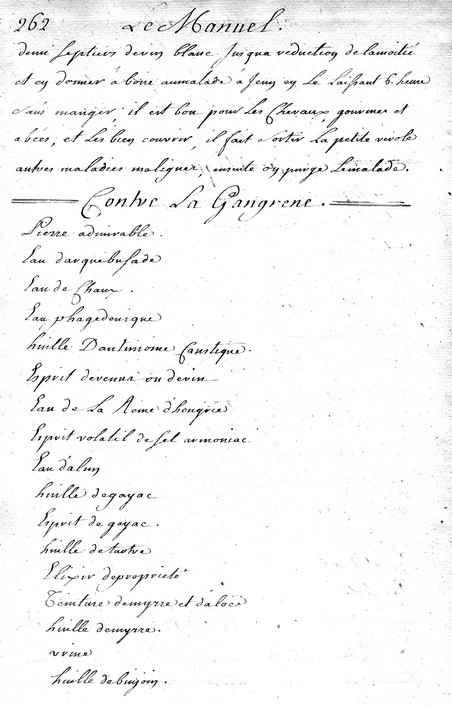 262 Le Manuel.
demi septiers de vin blanc jusqua reduction de lamoitié
et en donner à boire aumalade a jeun en Le Laissant 6 heure
sans manger, il est bon pour Les Chevaux, gourmes et
abcés, et Les bien couvrir, il fait sortir La petite verole
autres maladies malignes, ensuite on purge Lemalade.
Contre La Gangrene.
Pierre admirable.
Eau darquebusade
Eau de Chaux.
Eau phagedenique
huille Dantimoine Caustique.
Esprit devenus ou devin
Eau de La Reine d'hongrie
Esprit volatil de sel armoniac
Eau d'alun
huille degayac
Esprit de gayac.
huille detartre
Elixir deproprieté
Teinture demyrre et d'aloës
huille demyrre.
urine
huille debinjoin.